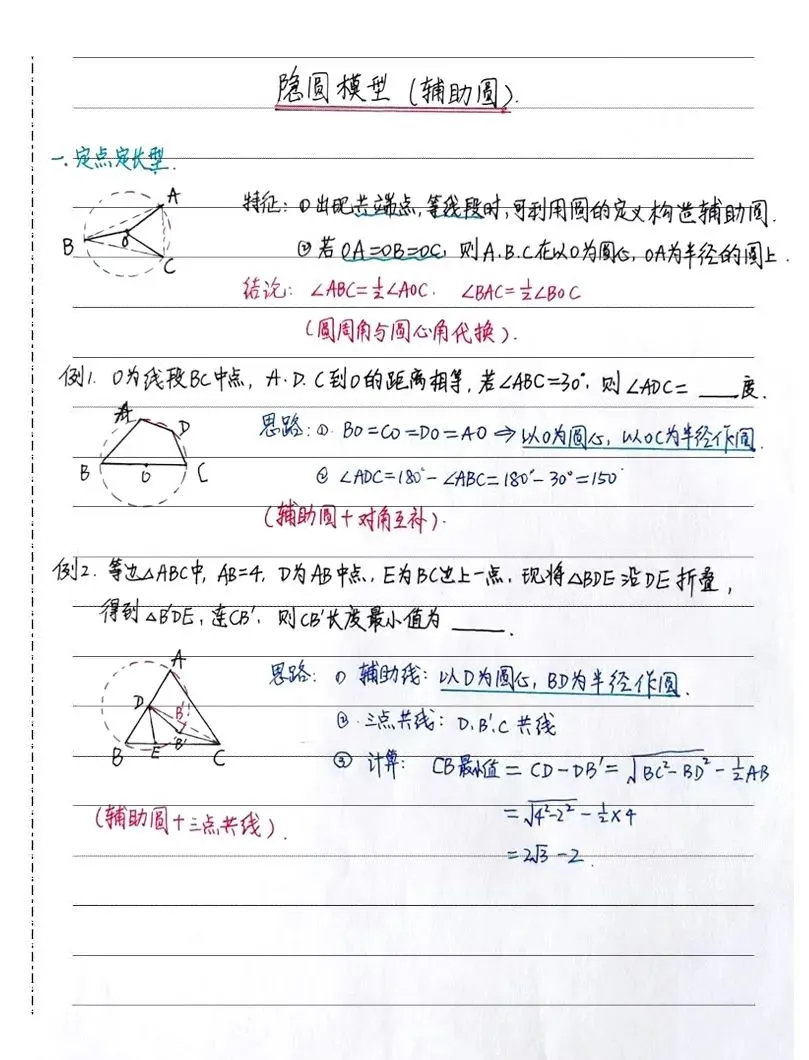 隐圆模型(辅助圆).
一.定点定长型.
A
B
O
C
特征:①出现共端点,等线段时,可利用圆的定义构造辅助圆.
②若OA=OB=OC,则A.B.C在以O为圆心,OA为半径的圆上.
结论: ∠ABC=½∠AOC. ∠BAC=½∠BOC
(圆周角与圆心角代换).
例1. O为线段BC中点, A.D.C到O的距离相等,若∠ABC=30°,则∠ADC= ____度.
A
D
B
O
C
思路:①. BO=CO=DO=AO ⇒ 以O为圆心,以OC为半径作圆.
② ∠ADC=180°-∠ABC=180°-30°=150°
(辅助圆+对角互补).
例2. 等边△ABC中, AB=4, D为AB中点, E为BC边上一点,现将△BDE沿DE折叠,
得到△B'DE,连CB',则CB'长度最小值为 ____.
A
D
B'
B'
B
E
C
思路: ① 辅助线: 以D为圆心, BD为半径作圆.
②. 三点共线: D.B'.C 共线
③ 计算: CB最小值 = CD-DB' = √BC²-BD² - ½AB
= √4²-2² - ½×4
= 2√3 -2.
(辅助圆+三点共线).